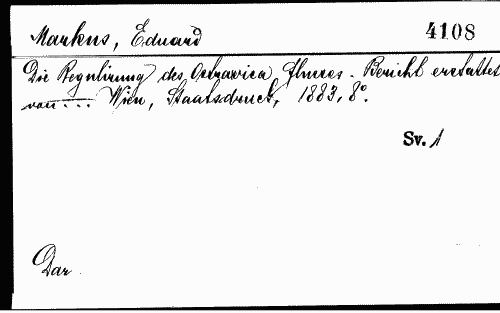 Markus, Eduard 4108
Die Regulirung des Ostrawica Flusses. Bericht erstattet
von ... Wien, Staatsdruck, 1883, 8°.
Sv. 1
Dar